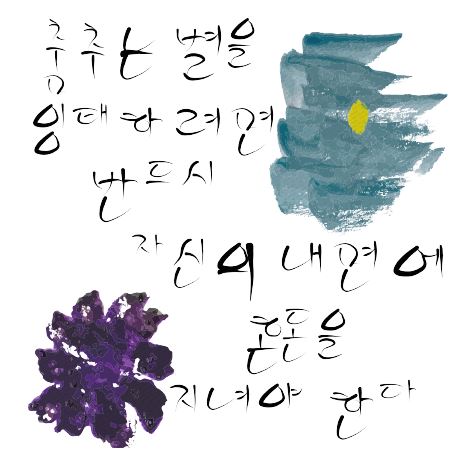 춤추는 별을
잉태하려면
반드시
자신의 내면에
혼돈을
지녀야 한다